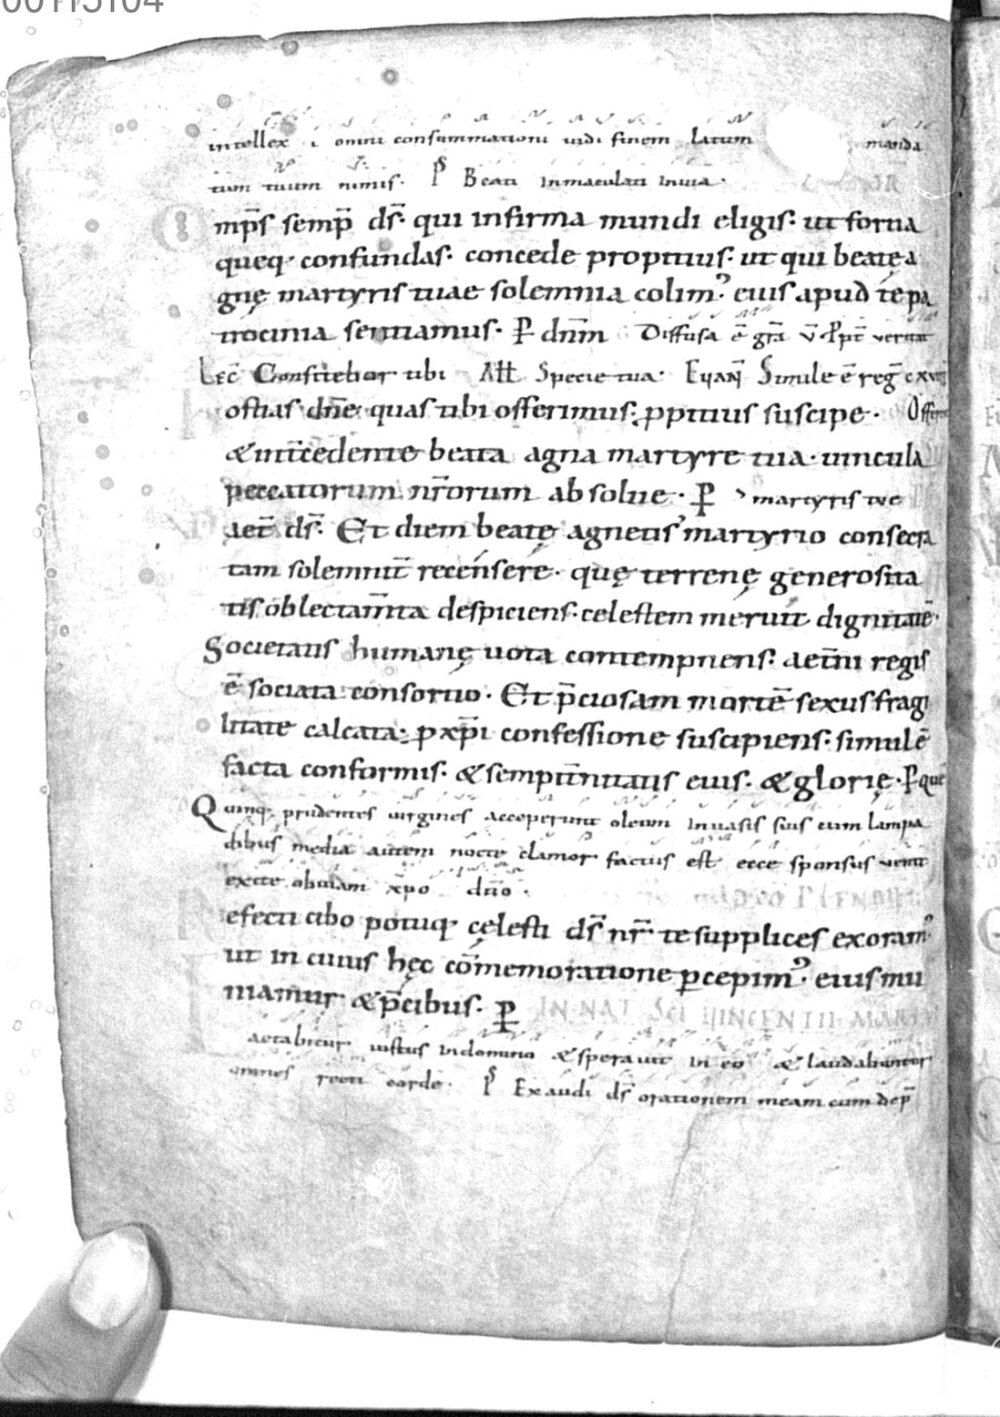 intellex i omni consummationi uidi finem Latum manda
tum tuum nimis. P̃s Beati inmaculati inuia.
mp̄s semp̄ ds̄. qui infirma mundi eligis. ut fortia
queq. confundas. concede propitius. ut qui beatę a
gnę martyris tuae solemnia colim᾽. eius apud te pa
trocinia sentiamus. P dnm̄ Diffusa ē grā v̄ ꝓpt̄ verita
Lec̄ Confitebor tibi All Specie tua. Euan̄ Simile ē reḡ cxvii
ostias dnē quas tibi offerimus. ꝓpitius suscipe. Offer
& int̄cedente beata agna martyre tua. uincula
peccatorum nr̄orum absolue. P martyris tuę
aet̄ ds̄. Et diem beatę agnetis martyrio consecra
tam solemnit̄ recensere. quę terrenę generosita
tis oblectam̄ta despiciens. celestem meruit dignitatē.
Societatis humanę uota contempnens. aet̄ni regis
ē sociata consortio. Et p̄ciosam mortē sexus fragi
litate calcata. ꝓ xp̄i confessione suscipiens. simul ē
facta conformis. & sempit̄nitatis eius. & glorię. P quē
Quinq. prudentes uirgines acceperunt oleum inuasis suis cum lampa
dibus media autem nocte clamor factus est ecce sponsus venit
exite obuiam xp̄o dn̄o.
efecti cibo potuq. celesti ds̄ nr̄ te supplices exoram᾽.
ut in cuius hęc cōmemoratione ꝑcepim᾽. eius mu
niamur & p̄cibus. P IN NAT SCI UINCENTII MARTY
aetabitur iustus in domino & sperauit in eo & laudabuntur
omnes recti corde. P̃s Exaudi ds̄ orationem meam cum dep̄